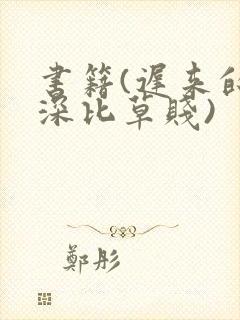 書籍(遲來的
深比草賤)
鄭彤